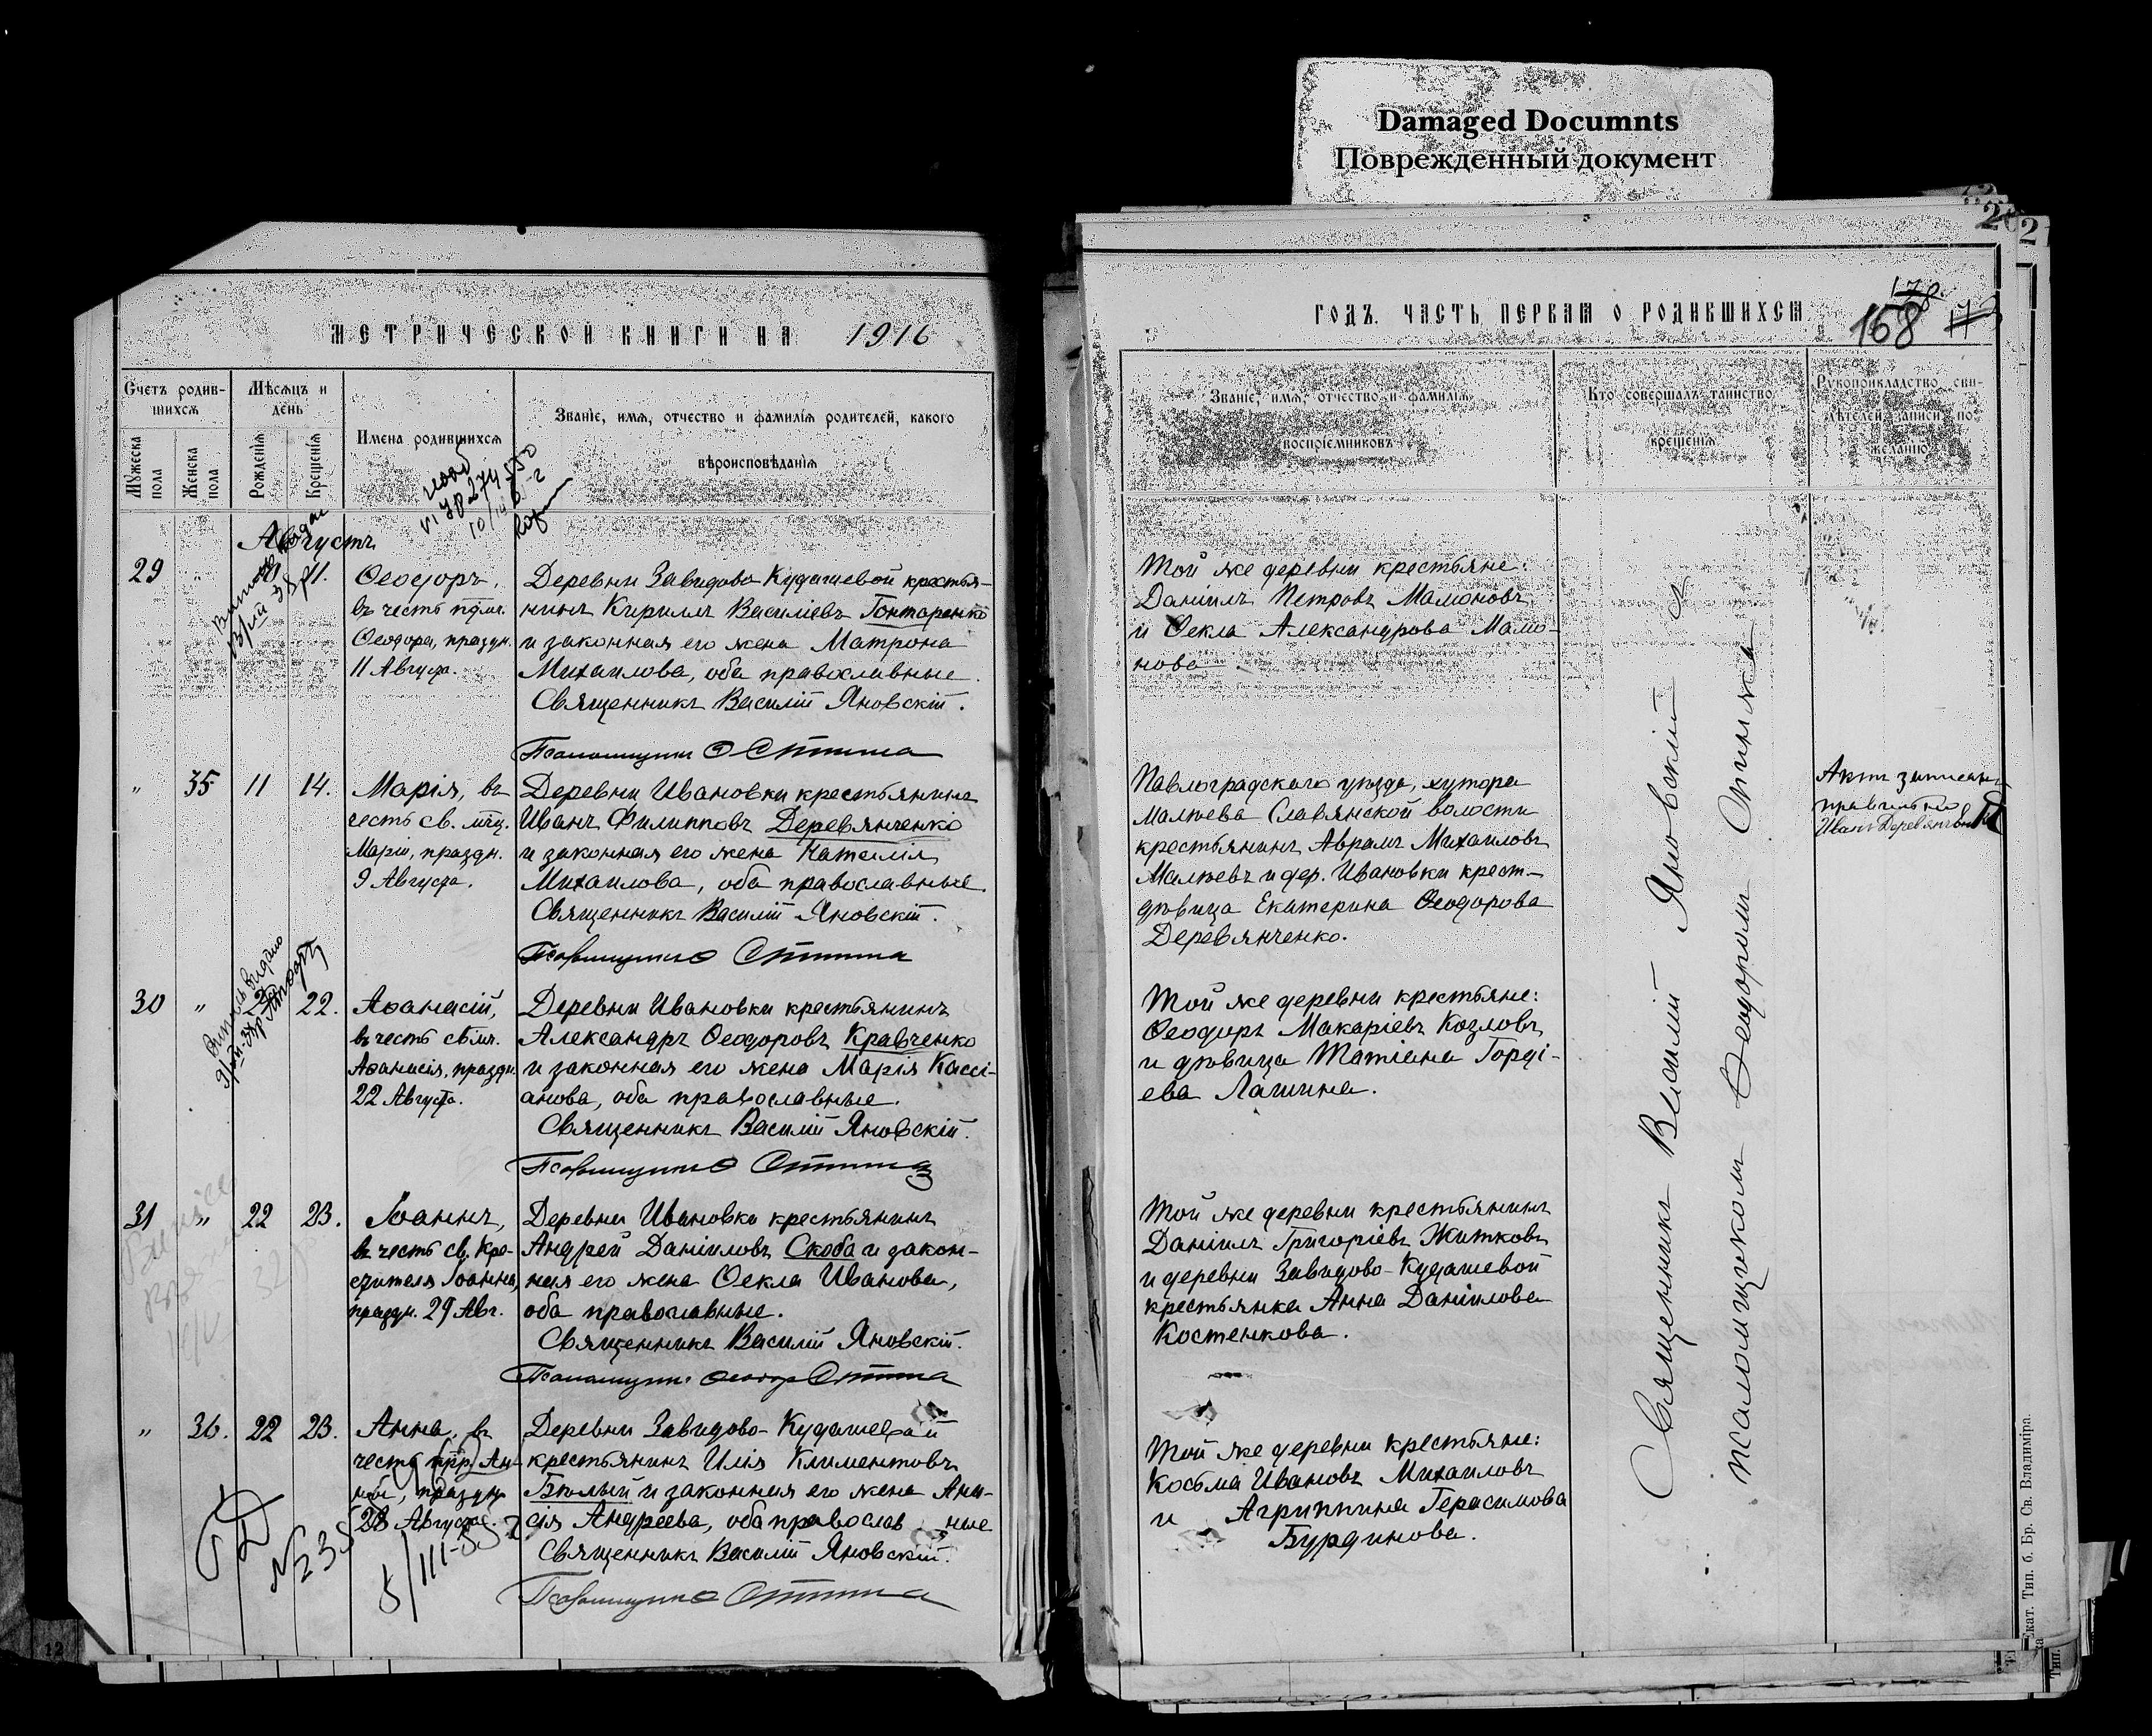 Damaged Documnts
Поврежденный документ
МЕТРИЧЕСКОЙ КНИГИ НА 1916
Счетъ родив-
шихся
Мѣсяцъ и
день
Мужеска
пола
Женска
пола
Рожденія
Крещенія
Имена родившихся
Званіе, имя, отчество и фамилія родителей, какого
вѣроисповѣданія
Августъ
29 " 11.
Ѳеодоръ,
въ честь
Ѳеодора, праздн.
11 Августа.
Деревни Завидово Кудашевой крестья-
нинъ Кириллъ Василіевъ Гонтаренко
и законная его жена Матрона
Михаилова, оба православные.
Священникъ Василій Яновскій.
Псаломщикъ Ѳ Отишта
" 35 11 14.
Марія, въ
честь св. мчц.
Маріи, праздн.
9 Августа.
Деревни Ивановки крестьянинъ
Иванъ Филипповъ Деревянченко
и законная его жена Наталія
Михаилова, оба православные.
Священникъ Василій Яновскій.
Псаломщикъ Ѳ
30 " 22.
Аѳанасій,
въ честь
Аѳанасія, праздн.
22 Августа.
Деревни Ивановки крестьянинъ
Александръ Ѳеодоровъ Кравченко
и законная его жена Марія Кассі-
анова, оба православные.
Священникъ Василій Яновскій.
Псаломщикъ Ѳ
31 " 22 23.
Іоаннъ,
въ честь св. Кре-
стителя Іоанна,
праздн. 29 Авг.
Деревни Ивановки крестьянинъ
Андрей Даніиловъ Скоба и закон-
ная его жена Ѳекла Иванова,
оба православные.
Священникъ Василій Яновскій.
Псаломщикъ Ѳеодоръ
" 36. 22 23.
Анна, въ
честь прр. Ан-
ны, праздн.
28 Августа.
Деревни Завидово-Кудашевой
крестьянинъ Илія Климентовъ
Бѣлый и законная его жена Ани-
сія Андреева, оба православ ные
Священникъ Василій Яновскій.
Псаломщикъ Ѳ
ГОДЪ. ЧАСТЬ ПЕРВАЯ О РОДИВШИХСЯ
178.
168
Званіе, имя, отчество и фамилія
воспріемниковъ
Кто совершалъ таинство
крещенія
Рукоприкладство сви-
дѣтелей записи по-
желанію
Той же деревни крестьяне:
Даніилъ Петровъ Мамоновъ
и Ѳекла Александрова Мамо-
нова
Павлоградскаго уѣзда, хутора
Малѣева Славянской волости
крестьянинъ Аврамъ Михаиловъ
Малѣевъ и дер. Ивановки крест-
дѣвица Екатерина Ѳеодорова
Деревянченко.
Актъ записанъ
правильно
Иванъ
Той же деревни крестьяне:
Ѳеодоръ Макаріевъ Козловъ
и дѣвица Татіана Горді-
ева Лашина.
Той же деревни крестьянинъ
Даніилъ Григоріевъ Житковъ
и деревни Завидово-Кудашевой
крестьянка Анна Даніилова
Костенкова.
Той же деревни крестьяне:
Косьма Ивановъ Михаиловъ
и Агриппина Герасимова
Бурдинова.
Священникъ Василій Яновскій с
псаломщикомъ Ѳеодоромъ
Екат. Тип. б. Бр. Св. Владиміра.